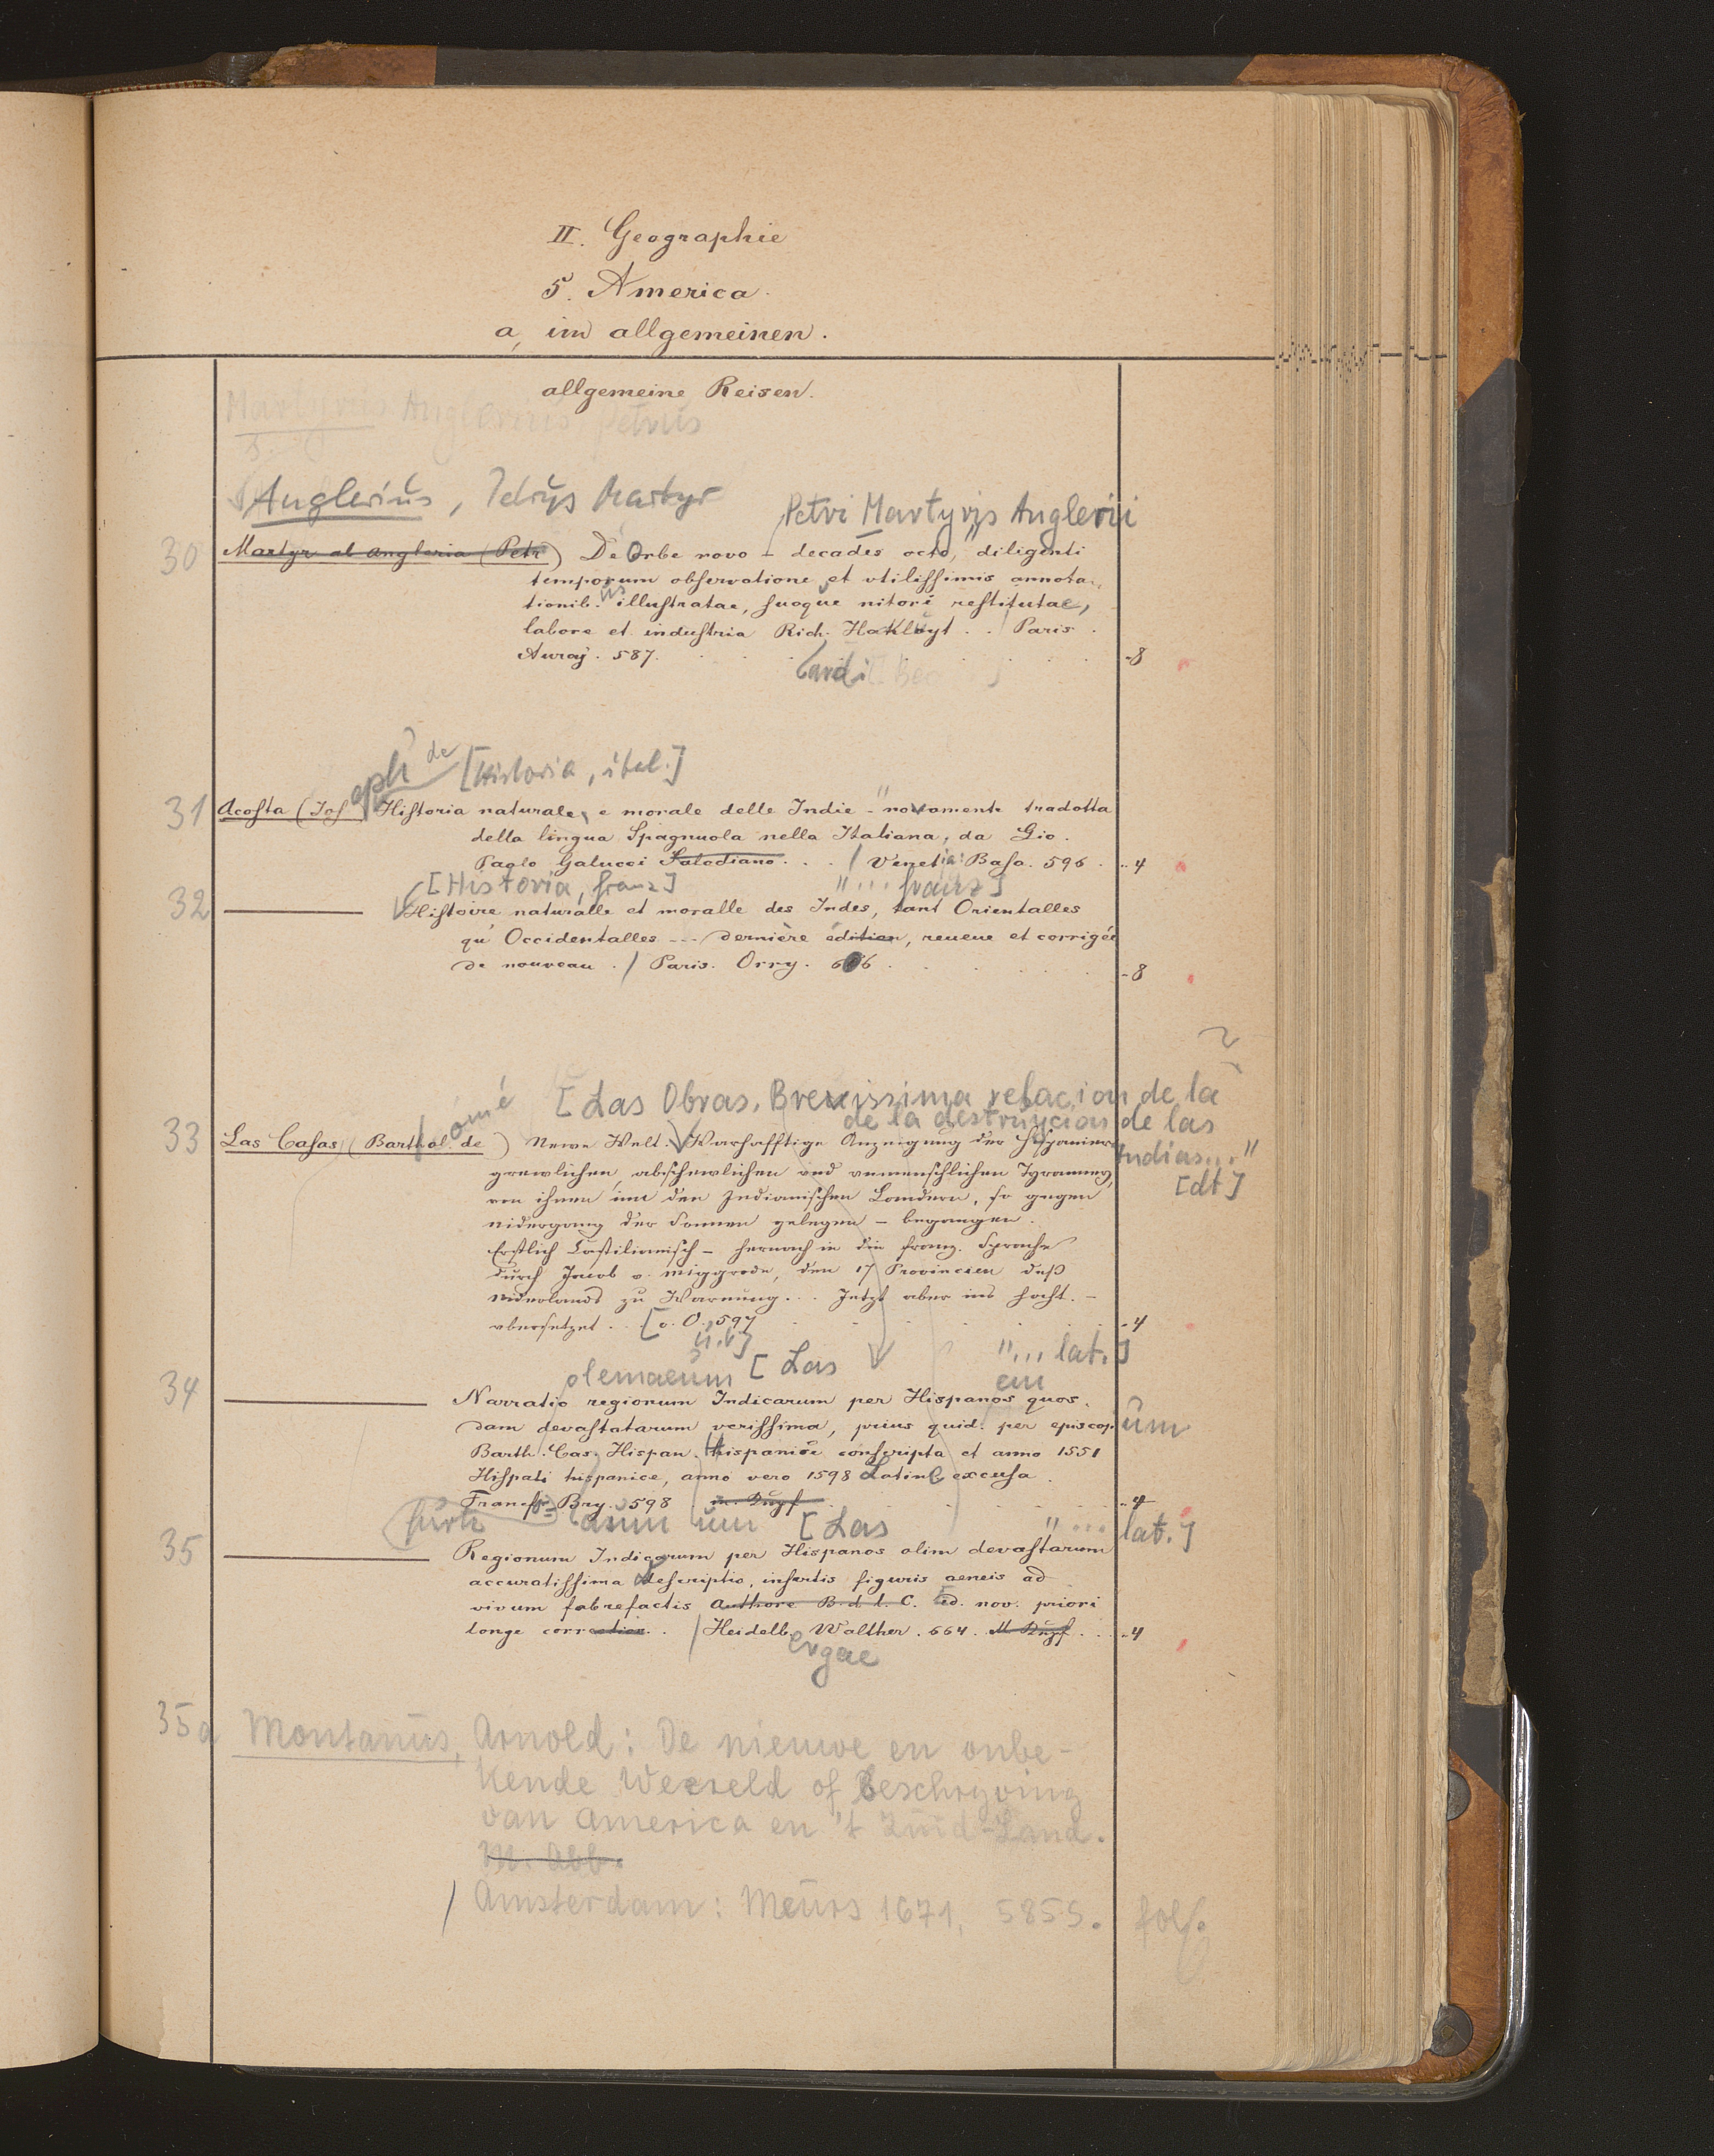 II. Geographie
5. America.
a, im allgemeinen.
allgemeine Reisen.
Martyrius Anglerius, Petrus
Anglerius, Petrus Martyr
Petri Martyris Anglerii
30 Martyr ab Angleria (Petr) De Orbe novo – decades octo, diligenti
temporum observatione et vtilissimis annota-
tionib. illustratae, suoque nitori restitutae,
labore et industria Rich. Hakluyt . . / Paris .
Auray . 587. -8
[Historia, ital.]
31 Acosta (Joseph de Historia naturale, e morale delle Indie – " novamente tradotta
della lingua Spagnuola nella Italiana, da Gio.
Paolo Galucci Salodiano . . . / Venetia: Basa. 596 . -4
[Historia, franz] "... franz]
32 Histoire naturalle et moralle des Indes, tant Orientalles
qu' Occidentalles --- dernière édition, reueue et corrigée
de nouveau . / Paris. Orry. 606 . -8
[Las Obras. Brevissima relacion de la
de la destruycion de las
Indias..."
[dt]
33 Las Casas (Bartholomé de) Newe Welt. Warhafftige Anzeigung der Hispanier
grewlichen, abschewlichen vnd vnmenschlichen Tyranney,
von ihnen inn den Indianischen Landern, so gegen
nidergang der Sonnen gelegen – begangen.
Erstlich Castilianisch – hernach in die franz. Sprache
durch Jacob v. Miggrode, den 17 Provincien deß
Niderlands zu Warnung . . . Jetzt aber ins Hocht. –
vbersetzet . . [o. O. 597 -4
[Las "... lat.]
34 Narratio regionum Indicarum per Hispanos quos-
dam devastatarum verissima, prius quid. per episcop. um
Barth. Cas. Hispan. hispanice conscripta et anno 1551
Hispali hispanice, anno vero 1598 Latine excusa .
Francf. Bry. 598 m. Kupf -4
furti [Las "... lat.]
35 Regionum Indicarum per Hispanos olim devastarum
accuratissima descriptio, insertis figuris aeneis ad
vivum fabrefactis Authore B. d. l. C. Ed. nov. priori
longe correction . . / Heidelb. Walther . 664 . M. Kupf . . -4
ergae
35a Montanus, Arnold: De nieuwe en onbe-
kende Weereld of Beschryving
van America en 't Zuid-Land.
M. Abb.
/ Amsterdam: Meurs 1671, 585 S. fol.